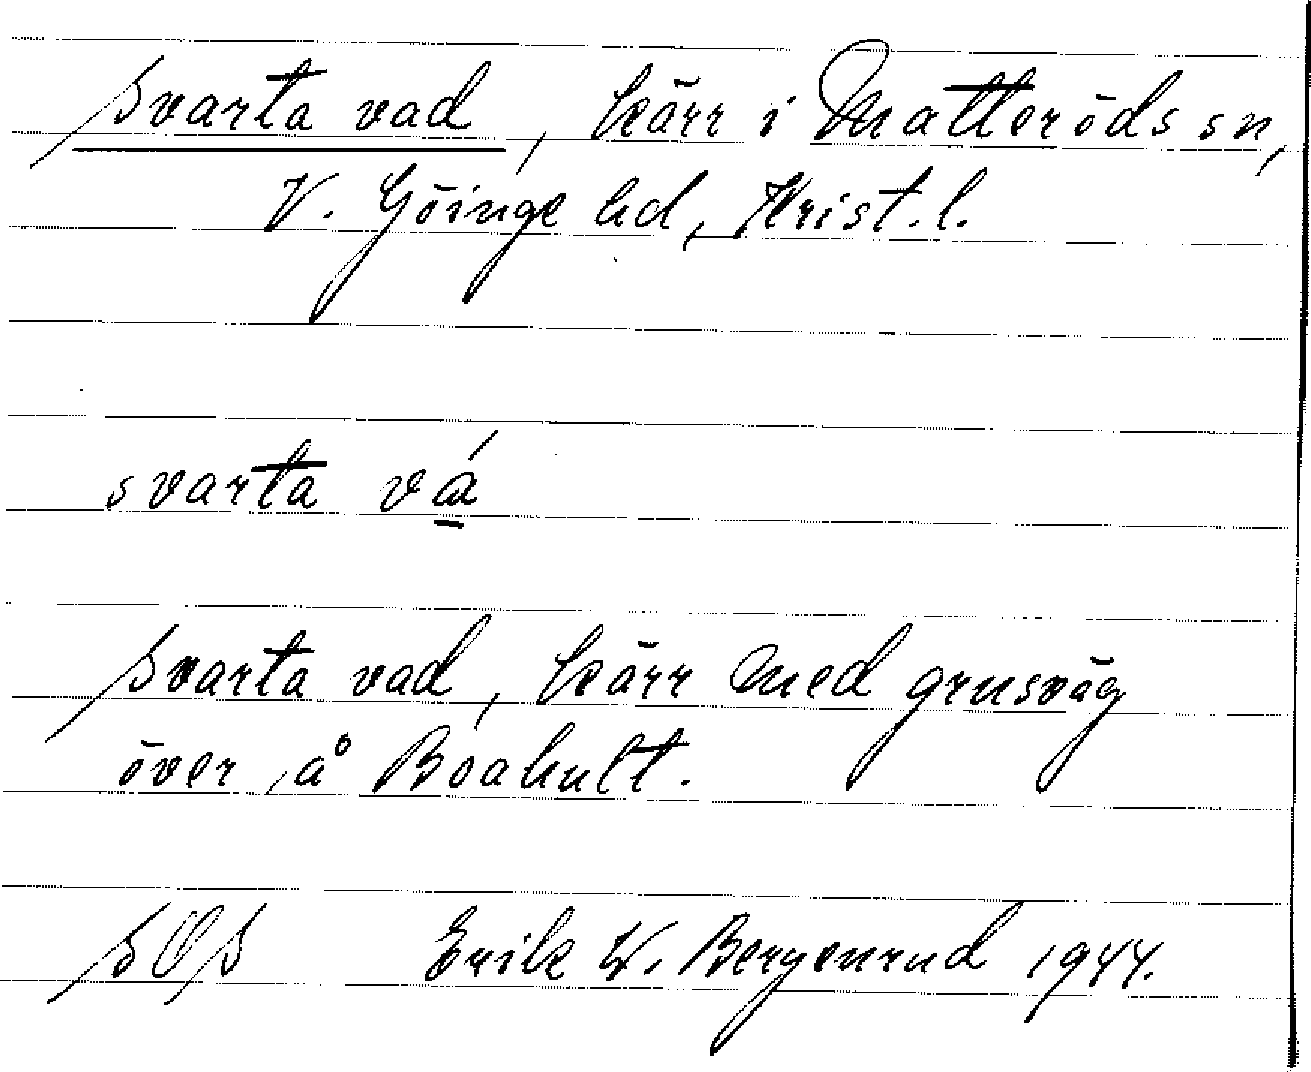 Svarta vad, kärr i Matteröds sn,
V. Göinge hd, Krist. l.
svarta vá
Svarta vad, kärr med grusväg
över, å Boahult.
SOS Erik W. Bergenrud 1944.